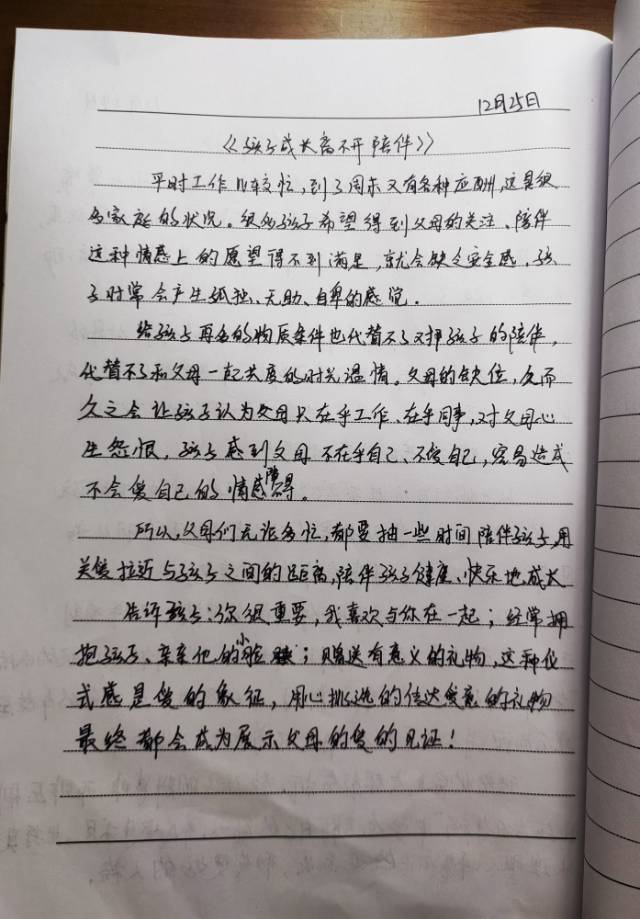 12月25日
《孩子成长离不开陪伴》
平时工作比较忙,到了周末又有各种应酬,这是很
多家庭的状况。很多孩子希望得到父母的关注、陪伴
这种情感上的愿望得不到满足,就会缺乏安全感,孩
子时常会产生孤独、无助、自卑的感觉.
给孩子再多的物质条件也代替不了对孩子的陪伴,
代替不了和父母一起共度的时光温情。父母的缺位,久而
久之会让孩子认为父母只在乎工作、在乎同事,对父母心
生怨恨,孩子感到父母不在乎自己、不爱自己,容易造成
不会爱自己的情感障碍。
所以,父母们无论多忙,都要抽一些时间陪伴孩子,用
关爱拉近与孩子之间的距离,陪伴孩子健康、快乐地成长
告诉孩子:你很重要,我喜欢与你在一起;经常拥
抱孩子、亲亲他的小脸;赠送有意义的礼物,这种仪
式感是爱的象征,用心挑选的传达爱意的礼物
最终都会成为展示父母的爱的见证!